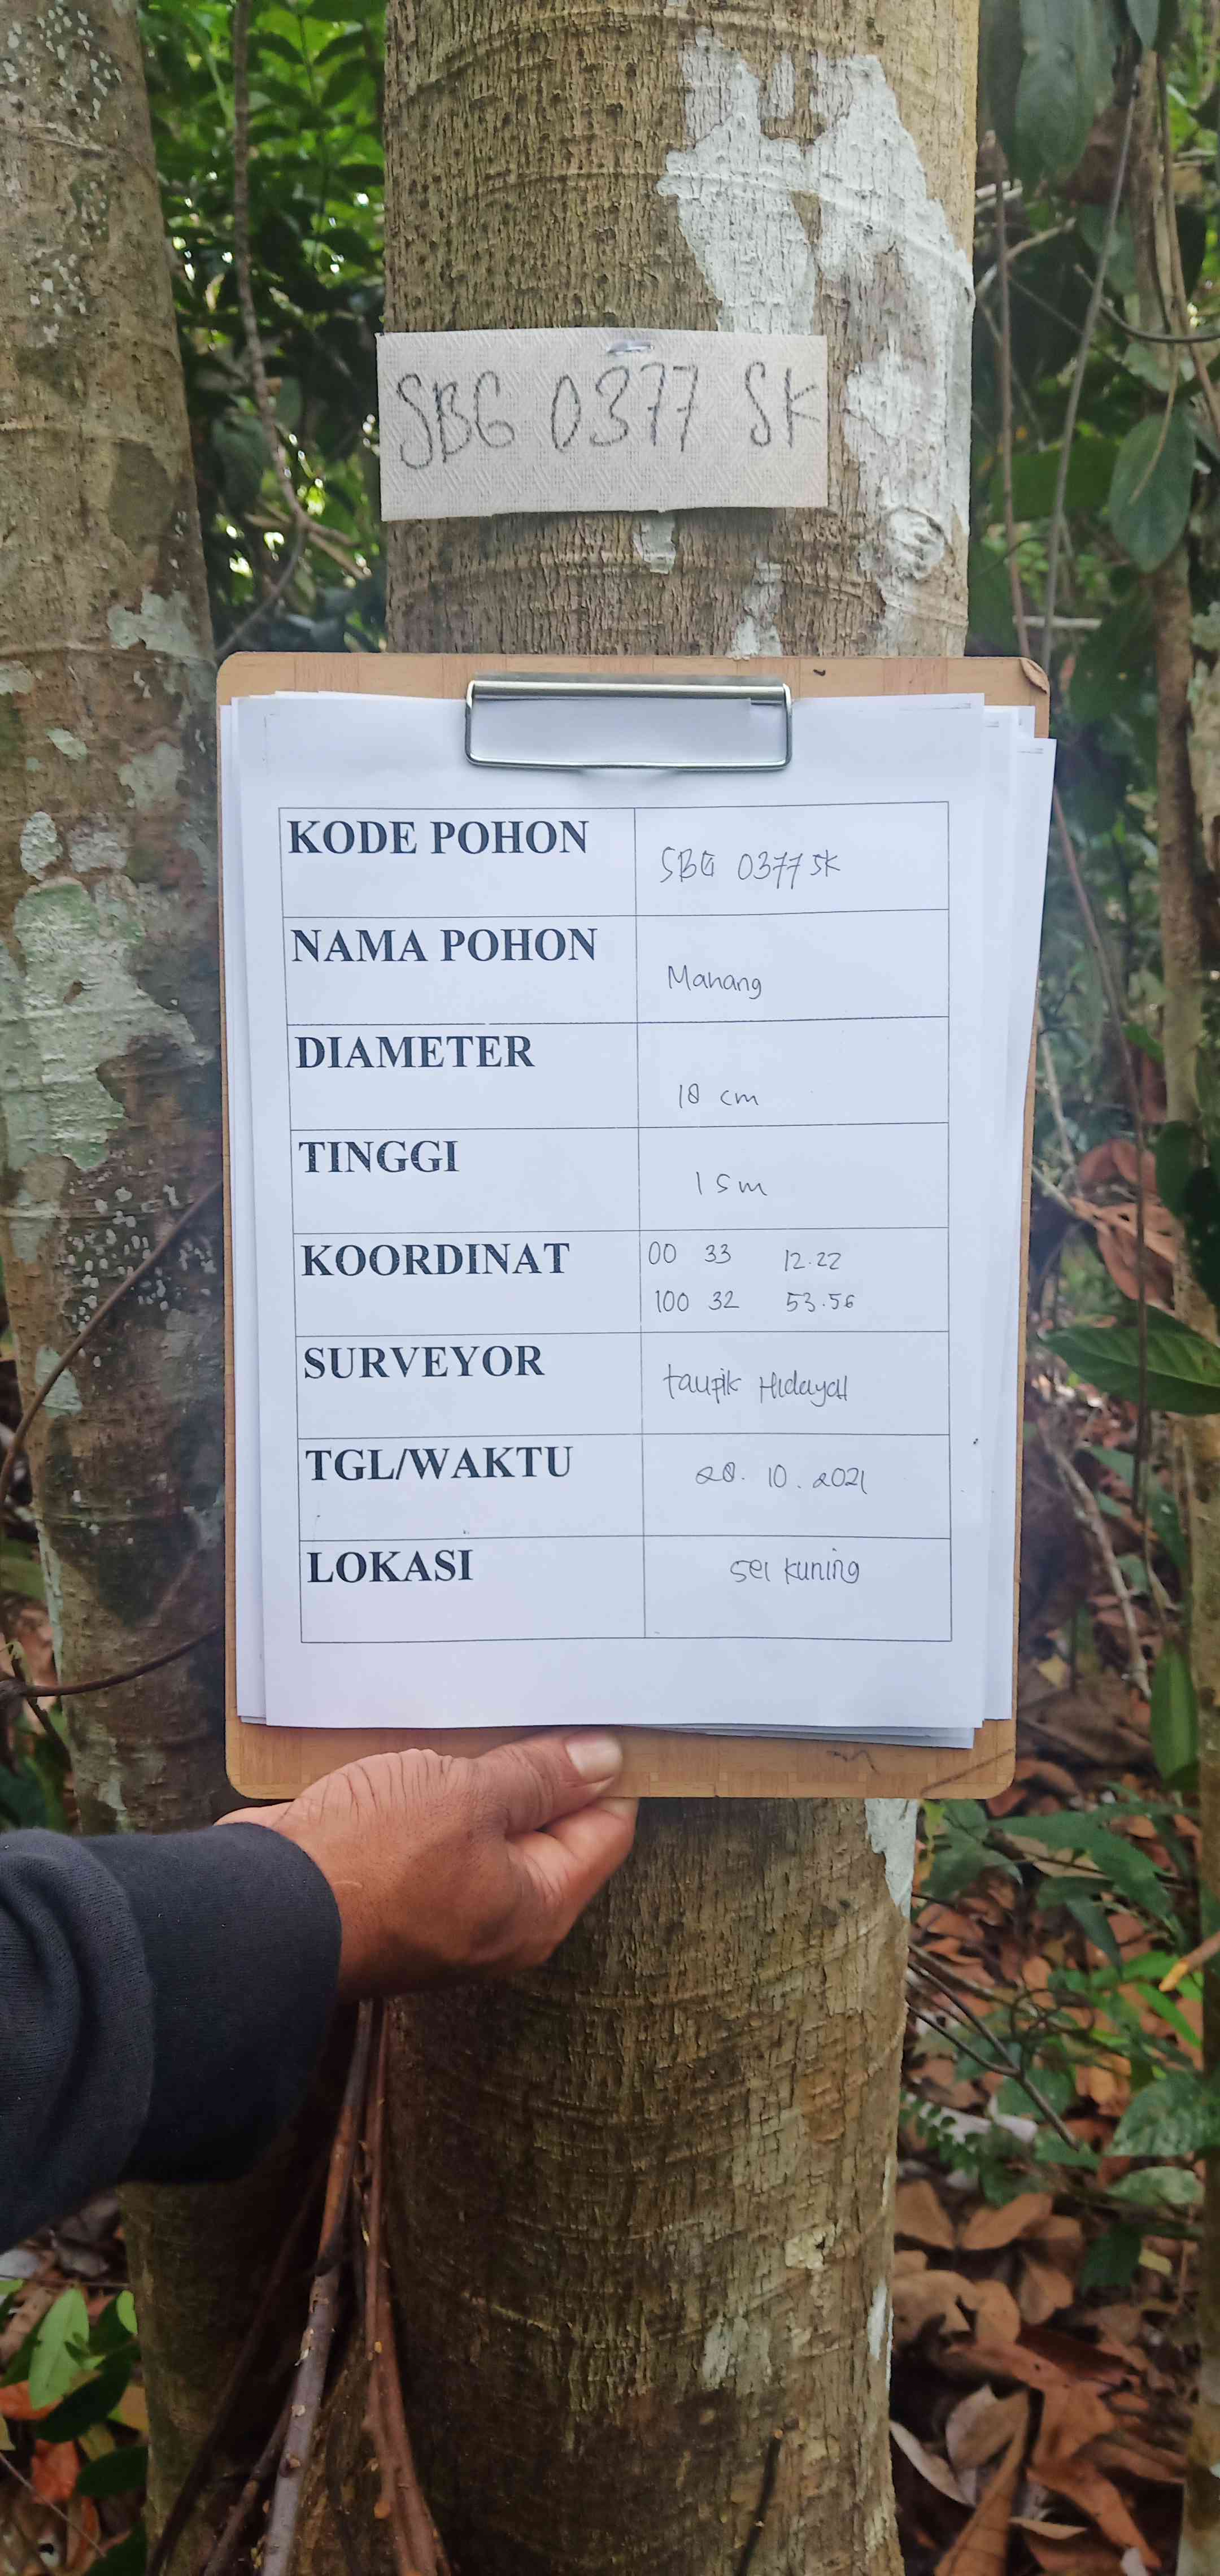 SBG 0377 SK
KODE POHON
SBG 0377 SK
NAMA POHON
Mahang
DIAMETER
18 cm
TINGGI
15m
KOORDINAT
00 33 12.22
100 32 53.56
SURVEYOR
taupik Hidayat
TGL/WAKTU
28. 10. 2021
LOKASI
sei kuning